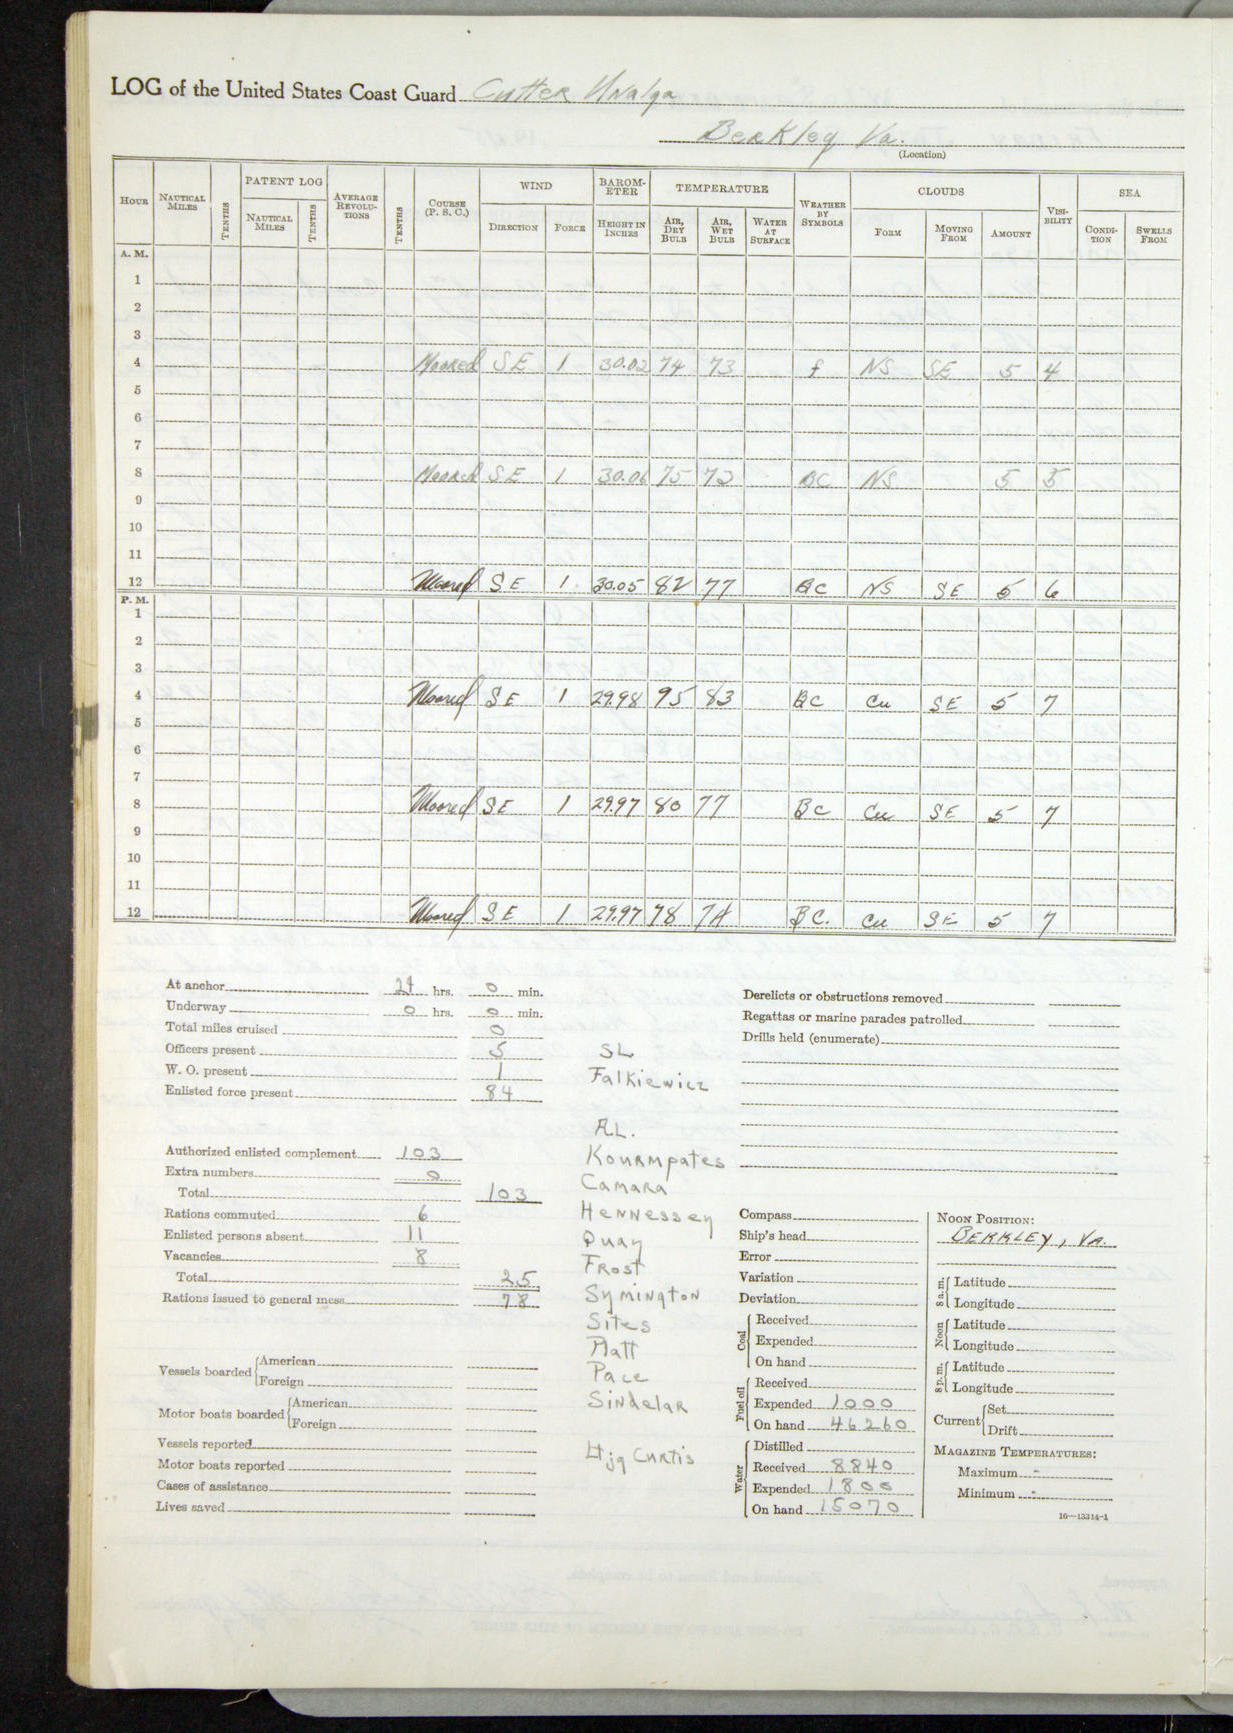 LOG of the United States Coast Guard Cutter Unalga
Berkley Va.
(Location)
HOUR NAUTICAL MILES TENTHS PATENT LOG NAUTICAL MILES TENTHS AVERAGE REVOLUTIONS TENTHS COURSE (P. S. C.) WIND DIRECTION FORCE BAROMETER HEIGHT IN INCHES TEMPERATURE AIR, DRY BULB AIR, WET BULB WATER AT SURFACE WEATHER BY SYMBOLS CLOUDS FORM MOVING FROM AMOUNT VISIBILITY SEA CONDITION SWELLS FROM
A. M.
1
2
3
4 Moored SE 1 30.02 74 73 f NS SE 5 4
5
6
7
8 Moored SE 1 30.06 75 73 BC NS 5 5
9
10
11
12 Moored SE 1 30.05 82 77 BC NS SE 5 6
P. M.
1
2
3
4 Moored SE 1 29.98 95 83 BC Cu SE 5 7
5
6
7
8 Moored SE 1 29.97 80 77 BC Cu SE 5 7
9
10
11
12 Moored SE 1 29.97 78 74 BC. Cu SE 5 7
At anchor 24 hrs. 0 min.
Underway 0 hrs. 0 min.
Total miles cruised 0
Officers present 5
W. O. present 1
Enlisted force present 84
Authorized enlisted complement 103
Extra numbers 0
Total 103
Rations commuted 6
Enlisted persons absent 11
Vacancies 8
Total 25
Rations issued to general mess 78
Vessels boarded American
Foreign
Motor boats boarded American
Foreign
Vessels reported
Motor boats reported
Cases of assistance
Lives saved
SL
Falkiewicz
A.L.
Kourmpates
Camara
Hennessey
Quay
Frost
Symington
Sites
Platt
Pace
Sindelar
Lt jg Curtis
Derelicts or obstructions removed
Regattas or marine parades patrolled
Drills held (enumerate)
Compass
Ship's head
Error
Variation
Deviation
Coal Received
Expended
On hand
Fuel oil Received
Expended 1000
On hand 46260
Water Distilled
Received 8840
Expended 1800
On hand 15070
NOON POSITION:
BERKLEY, VA.
8 a. m. Latitude
Longitude
Noon Latitude
Longitude
8 p. m. Latitude
Longitude
Current Set
Drift
MAGAZINE TEMPERATURES:
Maximum -
Minimum -
16—13314-1